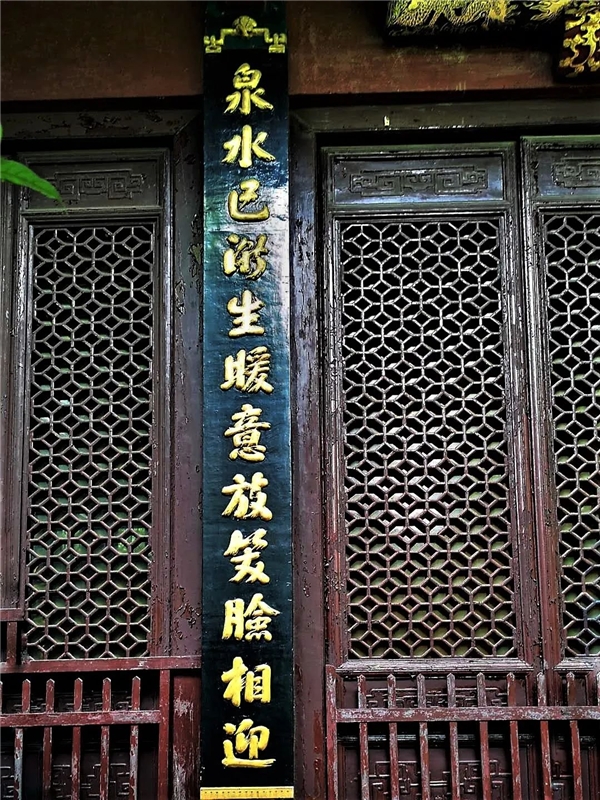 泉水已漸生暖意放笑臉相迎